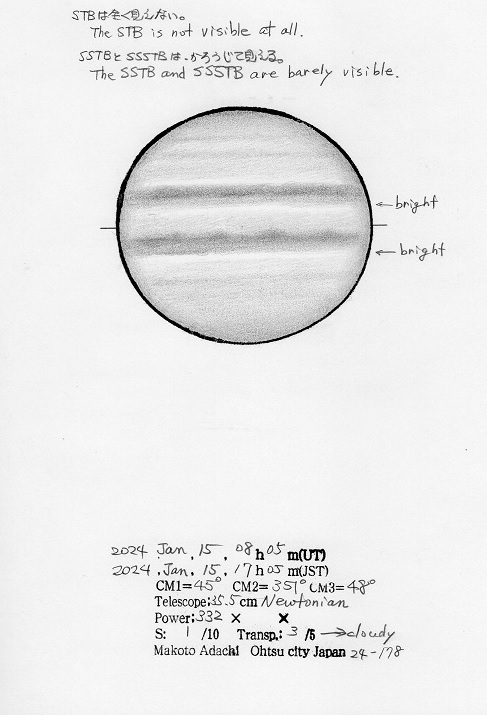 STBは全く見えない。
The STB is not visible at all.
SSTBとSSSTBは、かろうじて見える。
The SSTB and SSSTB are barely visible.
←bright
←bright
2024 Jan, 15, 08h05m(UT)
2024, Jan, 15, 17h05m(JST)
CM1=45° CM2=351° CM3=48°
Telescope:35.5cm Newtonian
Power:332 × ×
S: 1 /10 Transp.: 3 /5 →cloudy
Makoto Adachi Ohtsu city Japan 24-178